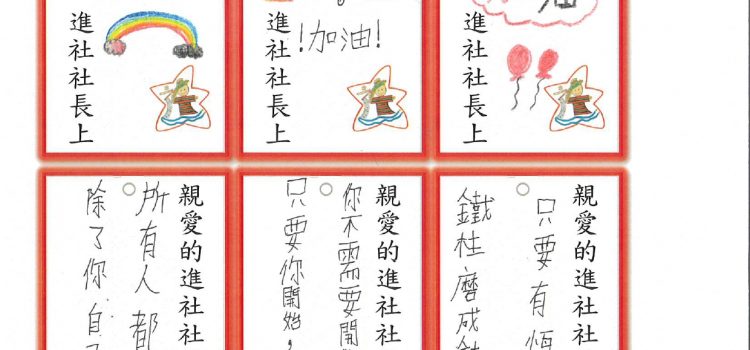 進社社長上
!加油!
進社社長上
油
進社社長上
親愛的進社社
所有人都
除了你自
親愛的進社社
你不需要開
只要你開始，
親愛的進社社
只要有恆
鐵柱磨成